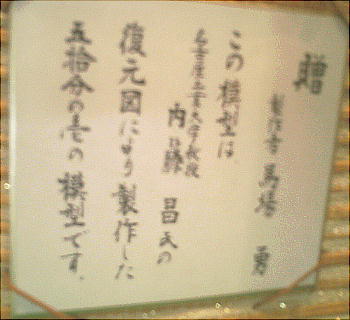 贈
製作者 馬場 勇
この模型は
名古屋工業大学教授
内藤 昌氏の
復元図により製作した
五拾分の壱の模型です。